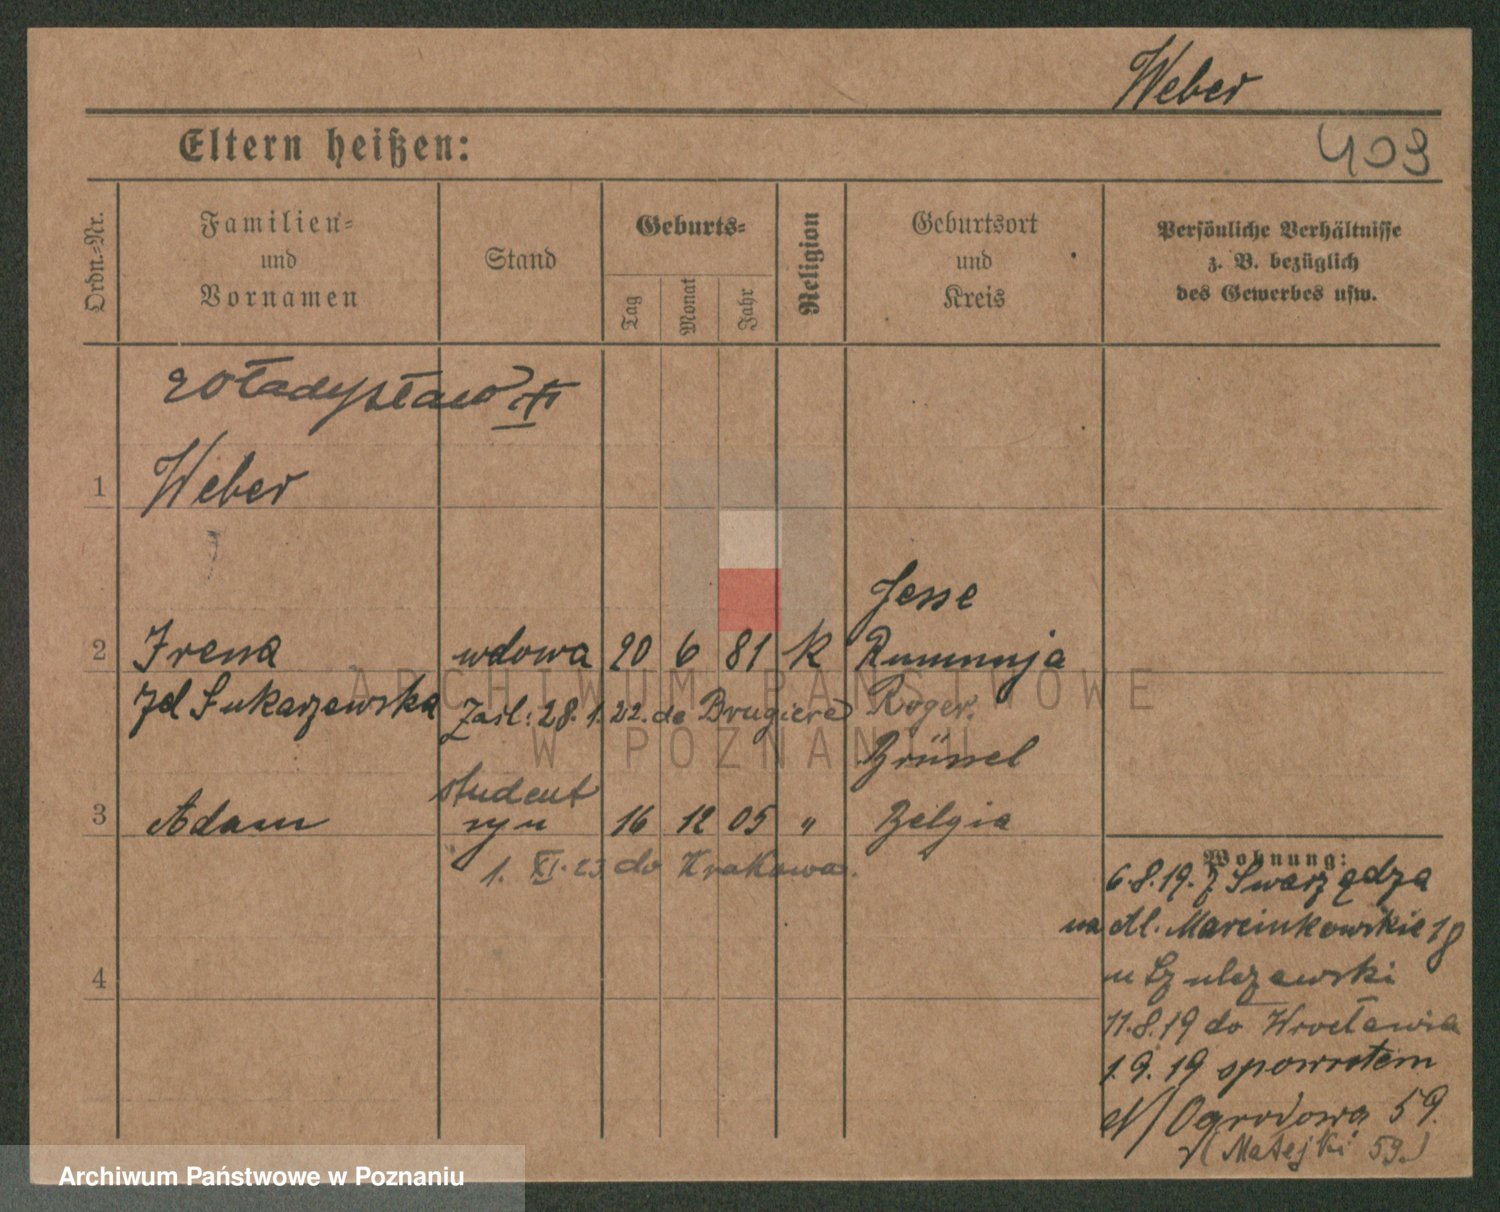 Weber
Eltern heißen:
403
Ordn.-Nr.
Familien- und Vornamen
Stand
Geburts-
Tag
Monat
Jahr
Religion
Geburtsort und Kreis
Persönliche Verhältnisse z. B. bezüglich des Gewerbes usw.
Władysław
1 Weber
Jesse
2 Irena wdowa 20 6 81 K Rumunja
zd Sukarzewska Zaśl: 28. 1. 22. de Brugière Roger.
Brüssel
student
3 Adam syn 16 12 05 " Belgia
1. XI. 23 do Krakowa.
4
Wohnung:
6.8.19. z Swarzędza
na Al. Marcinkowskie 18
u Szulczewski
11.8.19 do Wrocławia
1.9.19 spowrotem
Ogrodowa 59.
(Matejki 59.)
ARCHIWUM PAŃSTWOWE
W POZNANIU
Archiwum Państwowe w Poznaniu